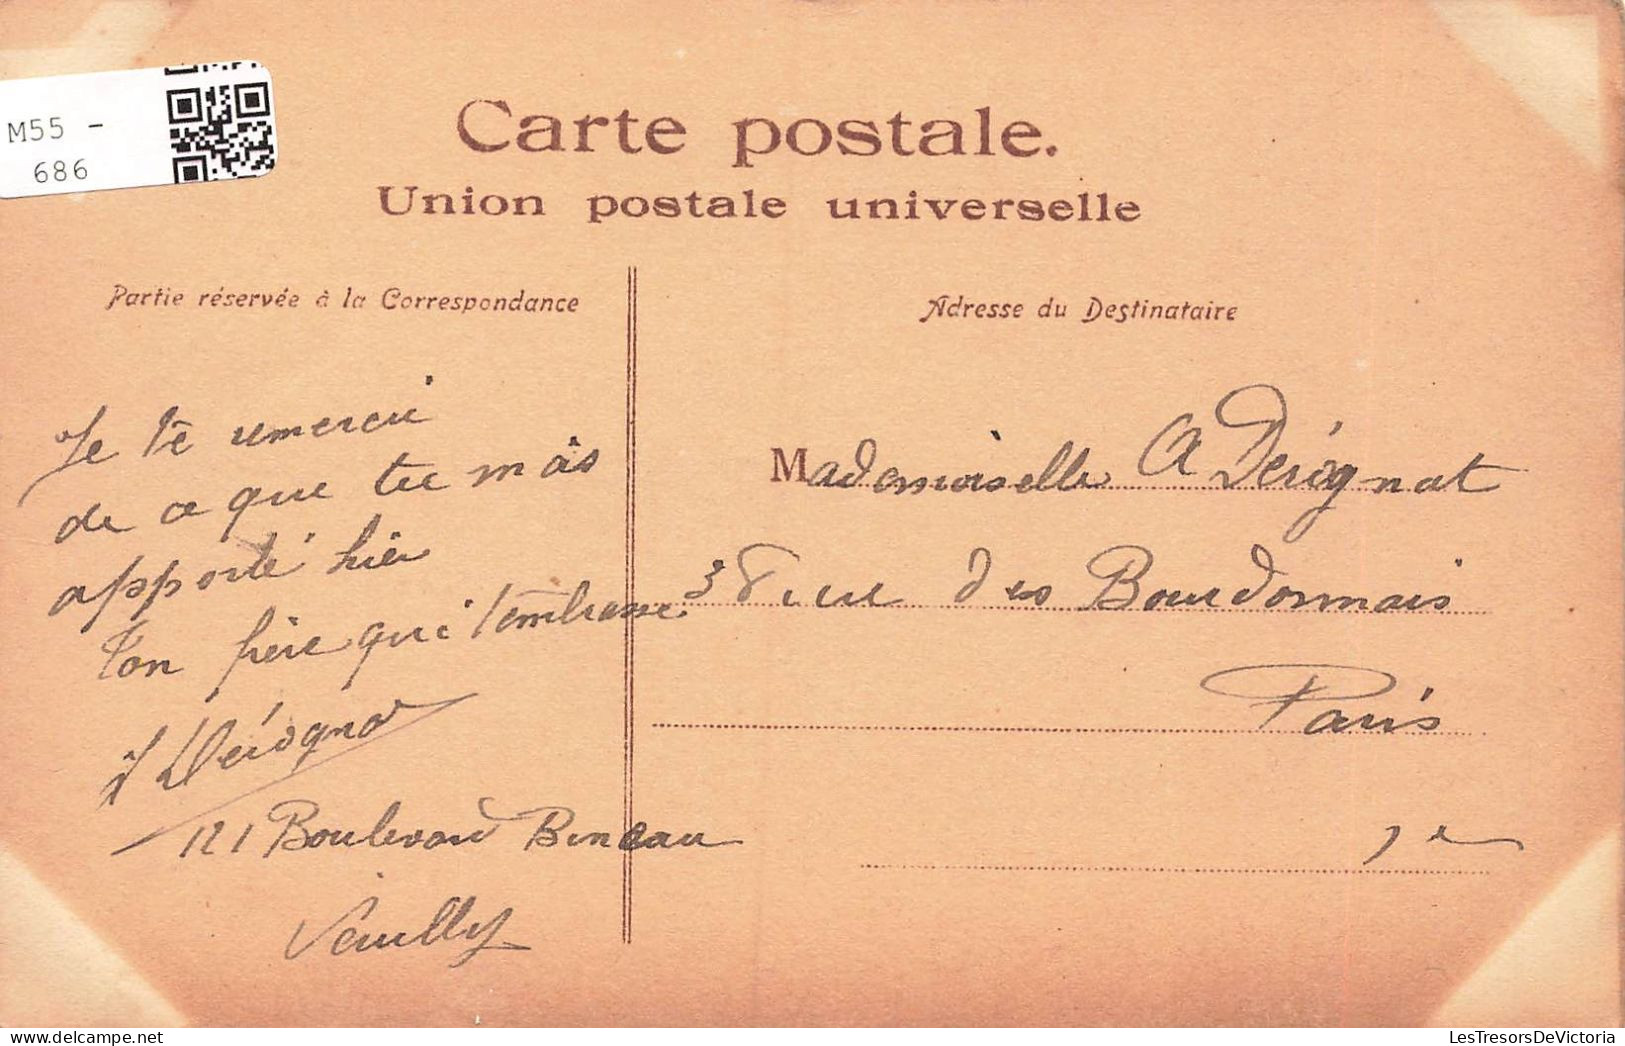 M55 -
686
Carte postale.
Union postale universelle
Partie réservée à la Correspondance
Je te remerci
de ce que tu m'as
apporté hier
Ton frère qui t'embrasse
J Dérognat
121 Boulevard Bineau
Neuilly
Adresse du Destinataire
Mademoiselle A Dérognat
3 rue des Bourdonnais
Paris
1e
LesTresorsDeVictoria